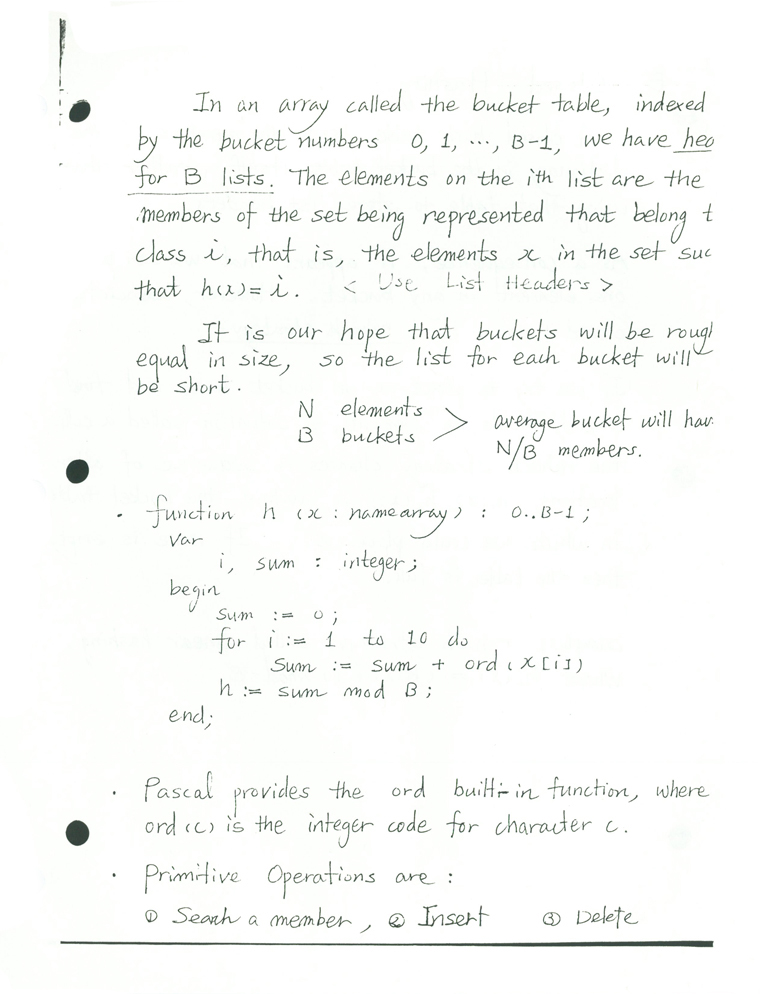 In an array called the bucket table, indexed
by the bucket numbers 0, 1, ..., B-1, we have hea
for B lists. The elements on the ith list are the
members of the set being represented that belong t
class i, that is, the elements x in the set suc
that h(x) = i. < Use List Headers >
It is our hope that buckets will be rougl
equal in size, so the list for each bucket will
be short.
N elements
B buckets > average bucket will hav
N/B members.
. function h (x : namearray) : 0..B-1;
var
i, sum : integer;
begin
sum := 0;
for i := 1 to 10 do
sum := sum + ord (x[i])
h := sum mod B;
end;
. Pascal provides the ord built-in function, where
ord (c) is the integer code for character c.
. Primitive Operations are :
① Search a member, ② Insert ③ Delete